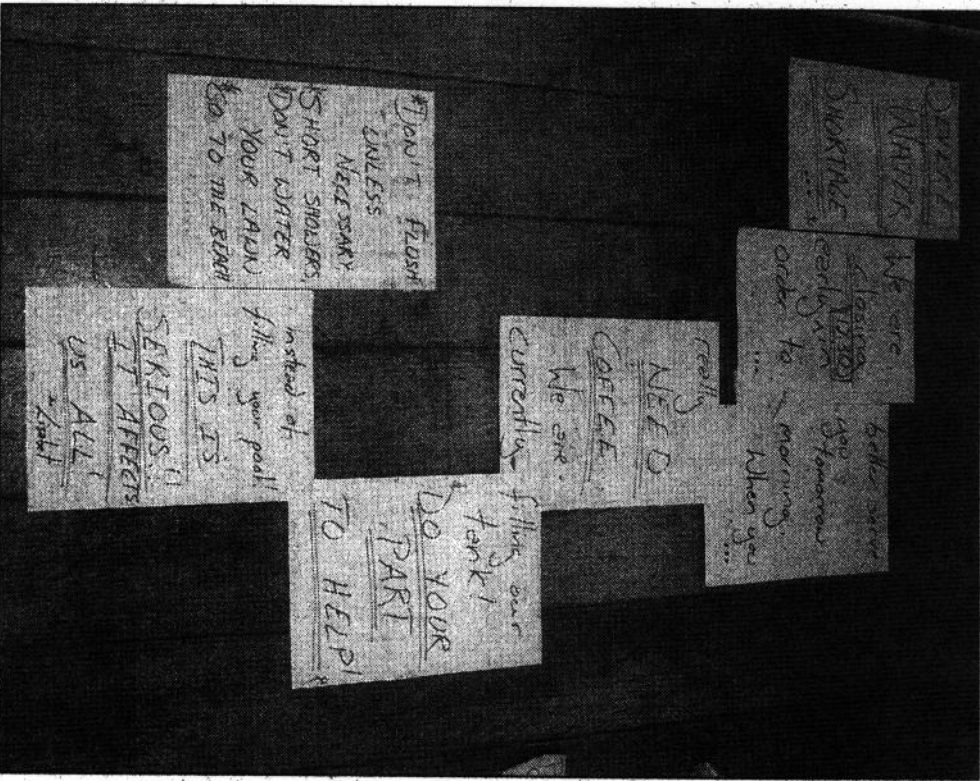 SEVERE
WATER
SHORTAGE
...
We are
closing
early in
order to
...
better serve
you tomorrow
morning.
When you
...
really
NEED
COFFEE.
We are
currently
filling our
tank!
*DO YOUR
PART
TO HELP!*
*DON'T FLUSH
UNLESS
NECESSARY
*SHORT SHOWERS
*DON'T WATER
YOUR LAWN
*GO TO THE BEACH
instead of
filling your pool!
THIS IS
SERIOUS!!
IT AFFECTS
US ALL